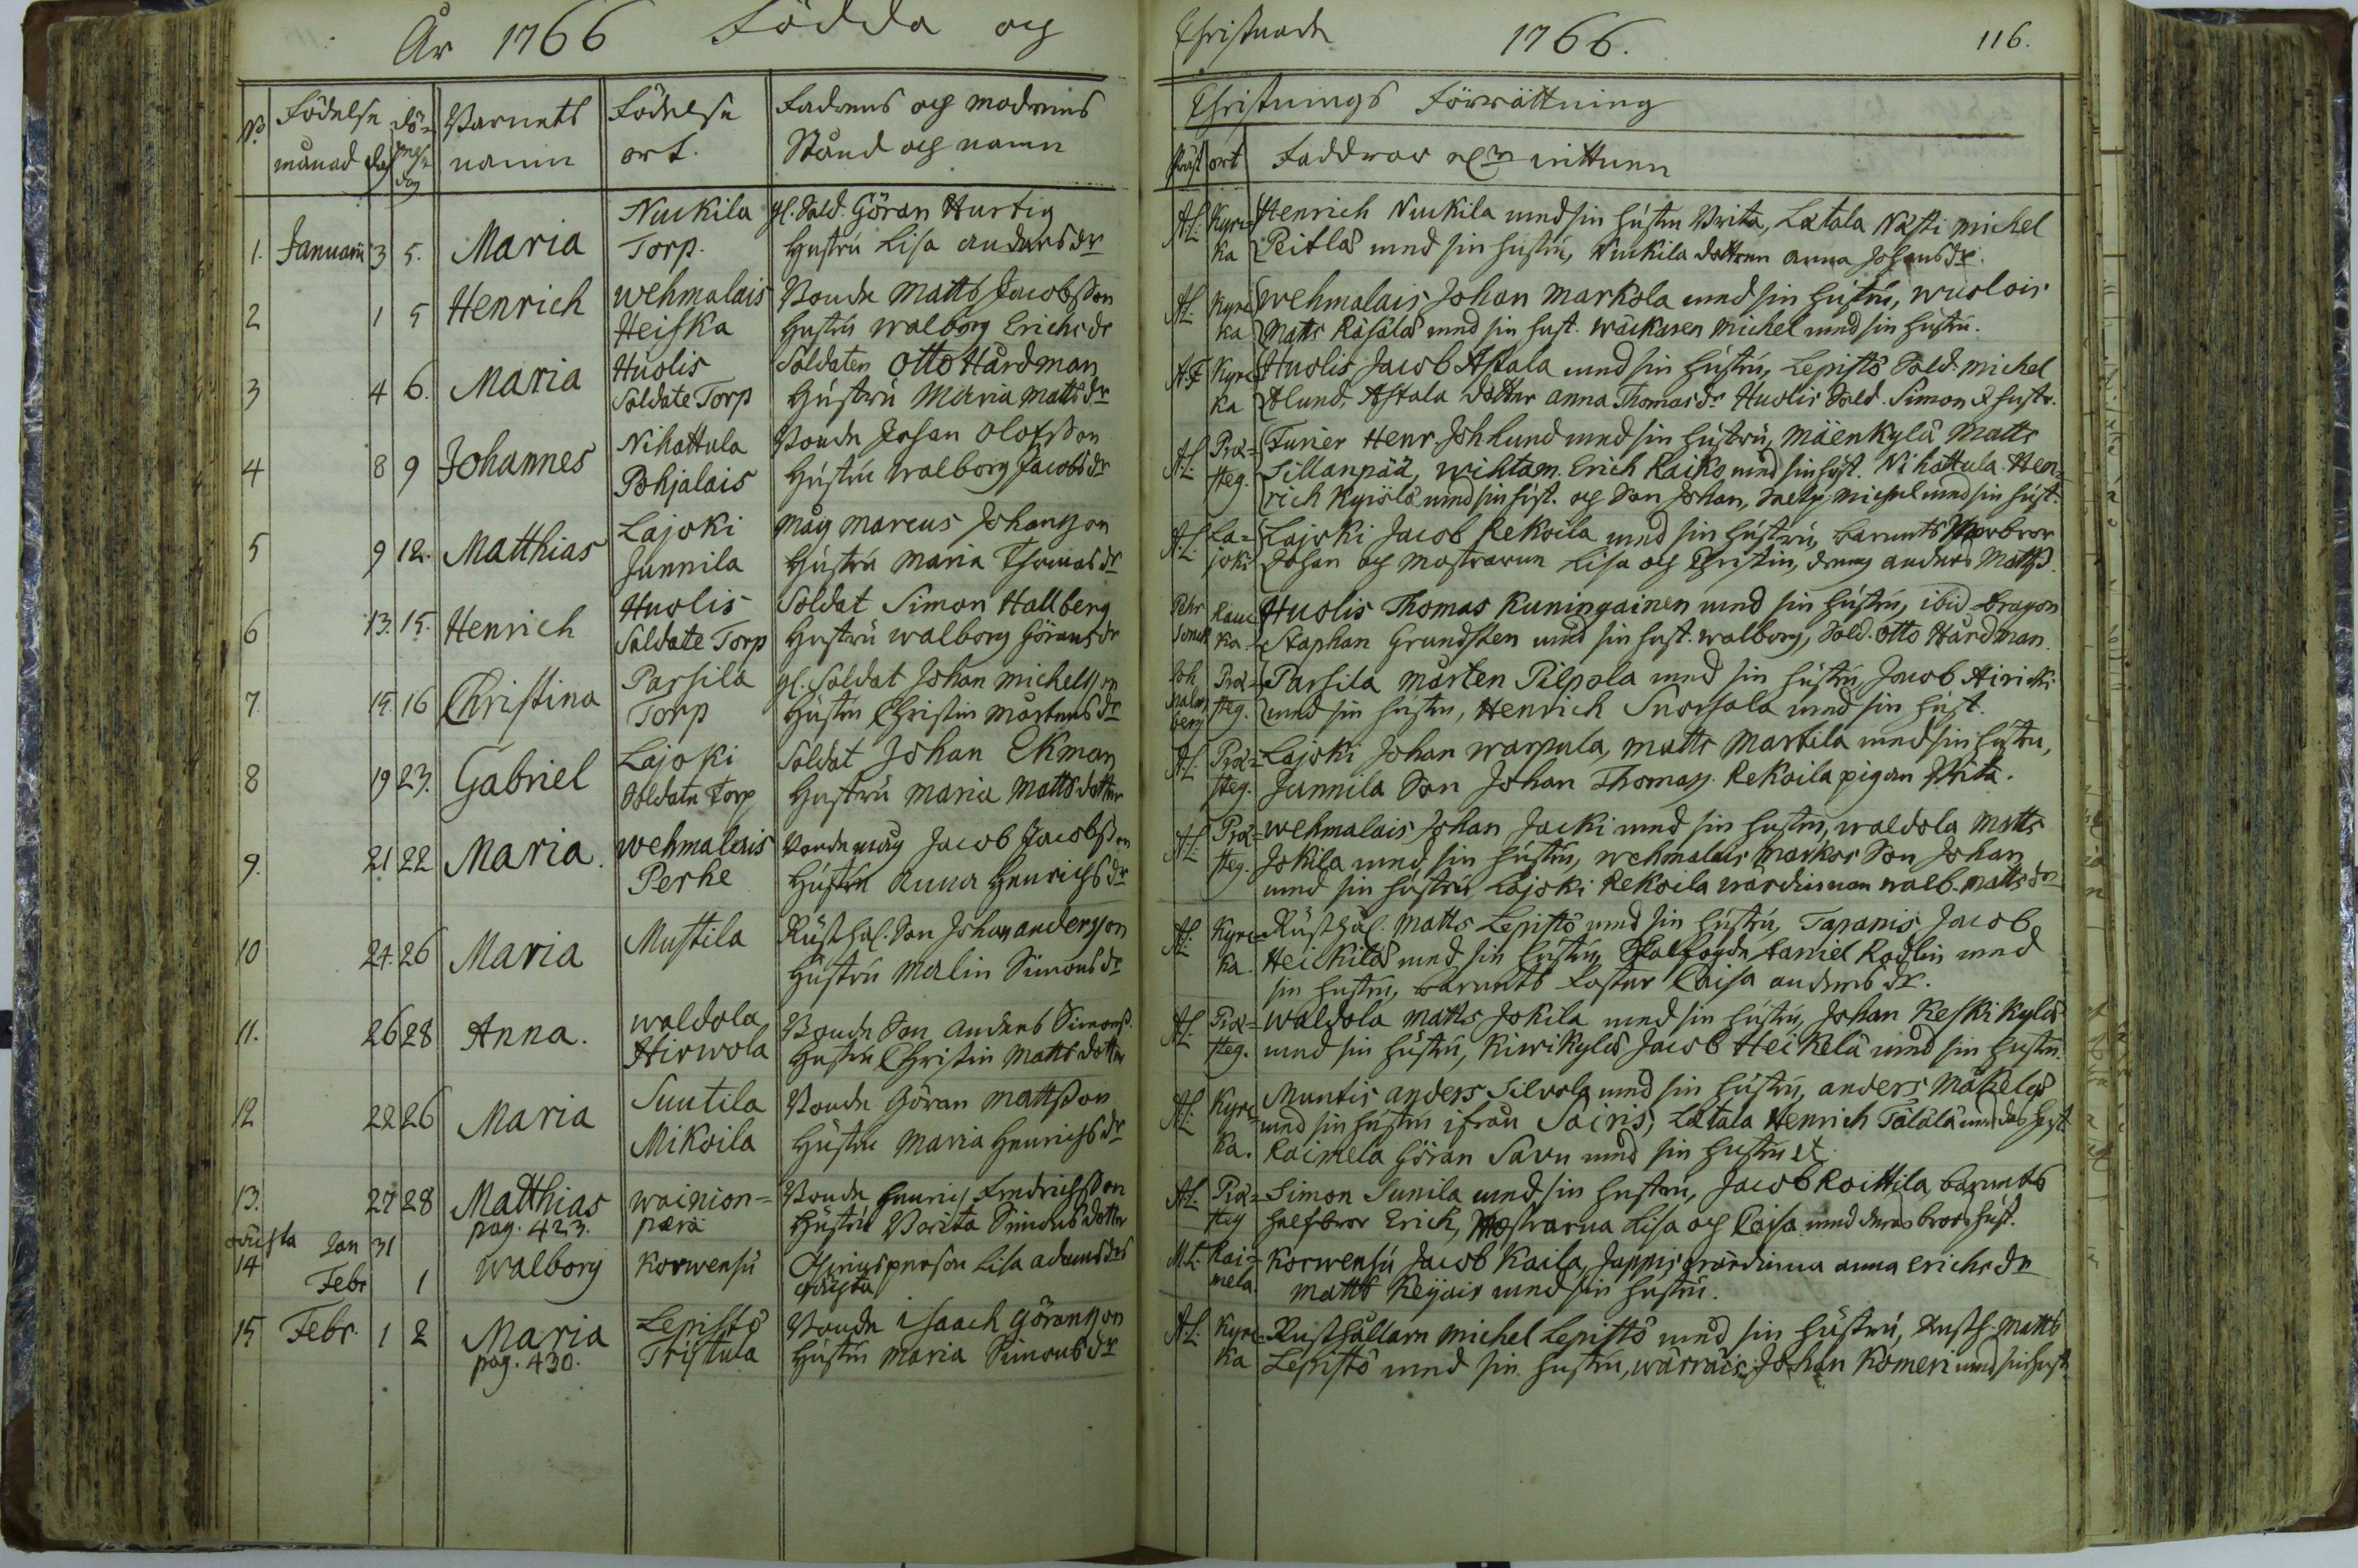 År 1766 Födda och
No. Födelse Dö=
månad dag pelse dag
Barnets
namn
Födelse
ort.
Fadrens och modrens
Stånd och namn
1. Januarii 3 5. Maria
Nuckila
Torp.
gl. Sold. Göran Hurtig
Hustru Lisa andersdr
2 1 5 Henrich
wehmalais
Heiska
Bonde Matts Jacobsson
Hustru walborg Erichsdr
3 4 6. Maria
Huolis
Soldate Torp
Soldaten Otto Hårdman
Hustru Maria Mattsdr
4 8 9 Johannes
Nihattula
Pohjalais
Bonde Johan Olofsson
Hustru walborg Jacobsdr
5 9 12. Matthias
Lajoki
Junnila
måg Marcus Johansson
Hustru Maria Thomasdr
6 13. 15. Henrich
Huolis
Soldate Torp
Soldat Simon Hallberg
Hustru walborg Göransdr
7. 15 16 Christina
Parsila
Torp
gl. Soldat Johan Michelsson
Hustru Christin Mårtensdr
8 19 23. Gabriel
Lajoki
Soldate Torp
Soldat Johan Ekman
Hustru Maria Mattsdotter
9. 21 22 Maria.
wehmalais
Perhe
Bonde måg Jacob Jacobsson
Hustru Anna Henrichsdr
10 24. 26 Maria
Mustila
Rusthål. Son Johan andersson
Hustru Malin Simonsdr
11. 26 28 Anna.
waldola
Hirwola
Bonde Son anders Simonss.
Hustru Christin Matts dotter
12 22 26 Maria
Suutila
Mikoila
Bonde Göran Mattsson
Hustru Maria Henrichsdr
13. 27 28 Matthias
pag. 423.
wainion=
perä
Bonde Henrich Fredrichsson
Hustru Brita Simonsdotter
oächta
14 Jan 31
Febr 1
walborg
Korwensu
Qvinsperson Lisa adamsdr
oächta
15 Febr. 1 2 Maria
pag. 430.
Lepistö
Tristula
Bonde isaach Göransson
Hustru Maria Simonsdr
Christnade 1766. 116.
Christnings Förrättning
Präst ort Faddrar och wittnen
A.L. Kyrc=
ka
Henrich Nuckila med sin hustru Brita, Latala Nästi Michel
Peitlas med sin hustru, Nuckila dottren anna Johansdr.
A.L. Kyrc
ka
wehmalais Johan Markola med sin hustru, wuolois
Matts Räsälä med sin hust. wäckaren Michel med sin hustru.
A.F Kyrc
ka
Huolis Jacob Astala med sin hustru, Lepistö Sold. michel
Ahlund, Astala dotter anna Thomasdr Huolis Sold. Simon & hustr.
A.L. Præ=
steg.
Furier Henr. Johlund med sin hustru, mäenkylä Matts
Sillanpää, wihtam. Erich Raiko med sin hust. Nihattula Hen=
rich Kyrölä med sin hust. och Son Johan, michel med sin hust.
A.L. La=
joki
Lajoki Jacob Rekoila med sin hustru, barnets Morbror
Johan och mostrarne Lisa och Christin, dreng anders Matts.
Pehr
Sonck
Rauc
ka
Huolis Thomas Kuningainen med sin hustru, ibid dragon
Staphan Grundsten med sin hust. walborg, Sold. Otto Hårdman.
Joh
Malm
berg
Præ=
steg.
Parsila mårten Pilpola med sin hustru, Jacob Hiricki
med sin hustru, Henrich Snorsala med sin hust.
A.L. Præ=
steg.
Lajoki Johan warpula, matts Martila med sin hustru,
Junnila Son Johan Thomass. Rekoila pigan Brita.
A.L. Præ=
steg.
wehmalais Johan Jacki med sin hustru, waldola Matts
Jokila med sin hustru, wehmalais Markos Son Johan
med sin hustru, Lajoki Rekoila wärdinnan walb. Mattsdr
A.L. Kyrc=
ka.
Rusthål. Matts Lepistö med sin hustru, Tapanis Jacob
Heickilä med sin hustru, Daniel Rodlin med
sin hustru, barnets Faster Caisa andersdr.
A.L. Præ=
steg.
waldola Matts Jokila med sin hustru, Johan Keskikylä
med sin hustru, Kiwikylä Jacob Heikelä med sin hustru.
A.L. Kyrc=
ka.
Muntis anders Silvola med sin hustru, anders Mäkelä
med sin hustru ifrån Sairis, Latala Henrich Tälälä med des hust
Raimela Göran Savu med sin hustru &
A.L. Præ=
steg
Simon Sunila med sin hustru, Jacob Roittila, barnets
halfbror Erick, Mostrarna Lisa och Caisa med deras brors hust.
M.L. Rai=
mela
Korwensu Jacob Kaila, Jappis wärdinna anna Erichsdr
matts Reijais med sin hustru.
A.L. Kyrc
ka
Rusthållarn Michel Lepistö med sin hustru, Rusth. Matts
Lepistö med sin hustru, wärräis Johan Komeri med sin hust.